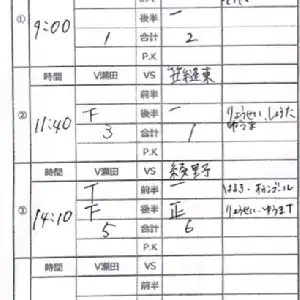 前半
① 9:00 後半 一
1 合計 2
P.K
時間 V瀬田 VS 笠縫東
前半
② 11:40 T 後半 一 りょうせい、しょうた
3 合計 1 ゆうま
P.K
時間 V瀬田 VS 綾里子
T 前半 一 はるき・オウンゴール
③ 14:10 F 後半 正 りょうせい・ゆうま
5 合計 6
P.K
時間 V瀬田 VS
前半